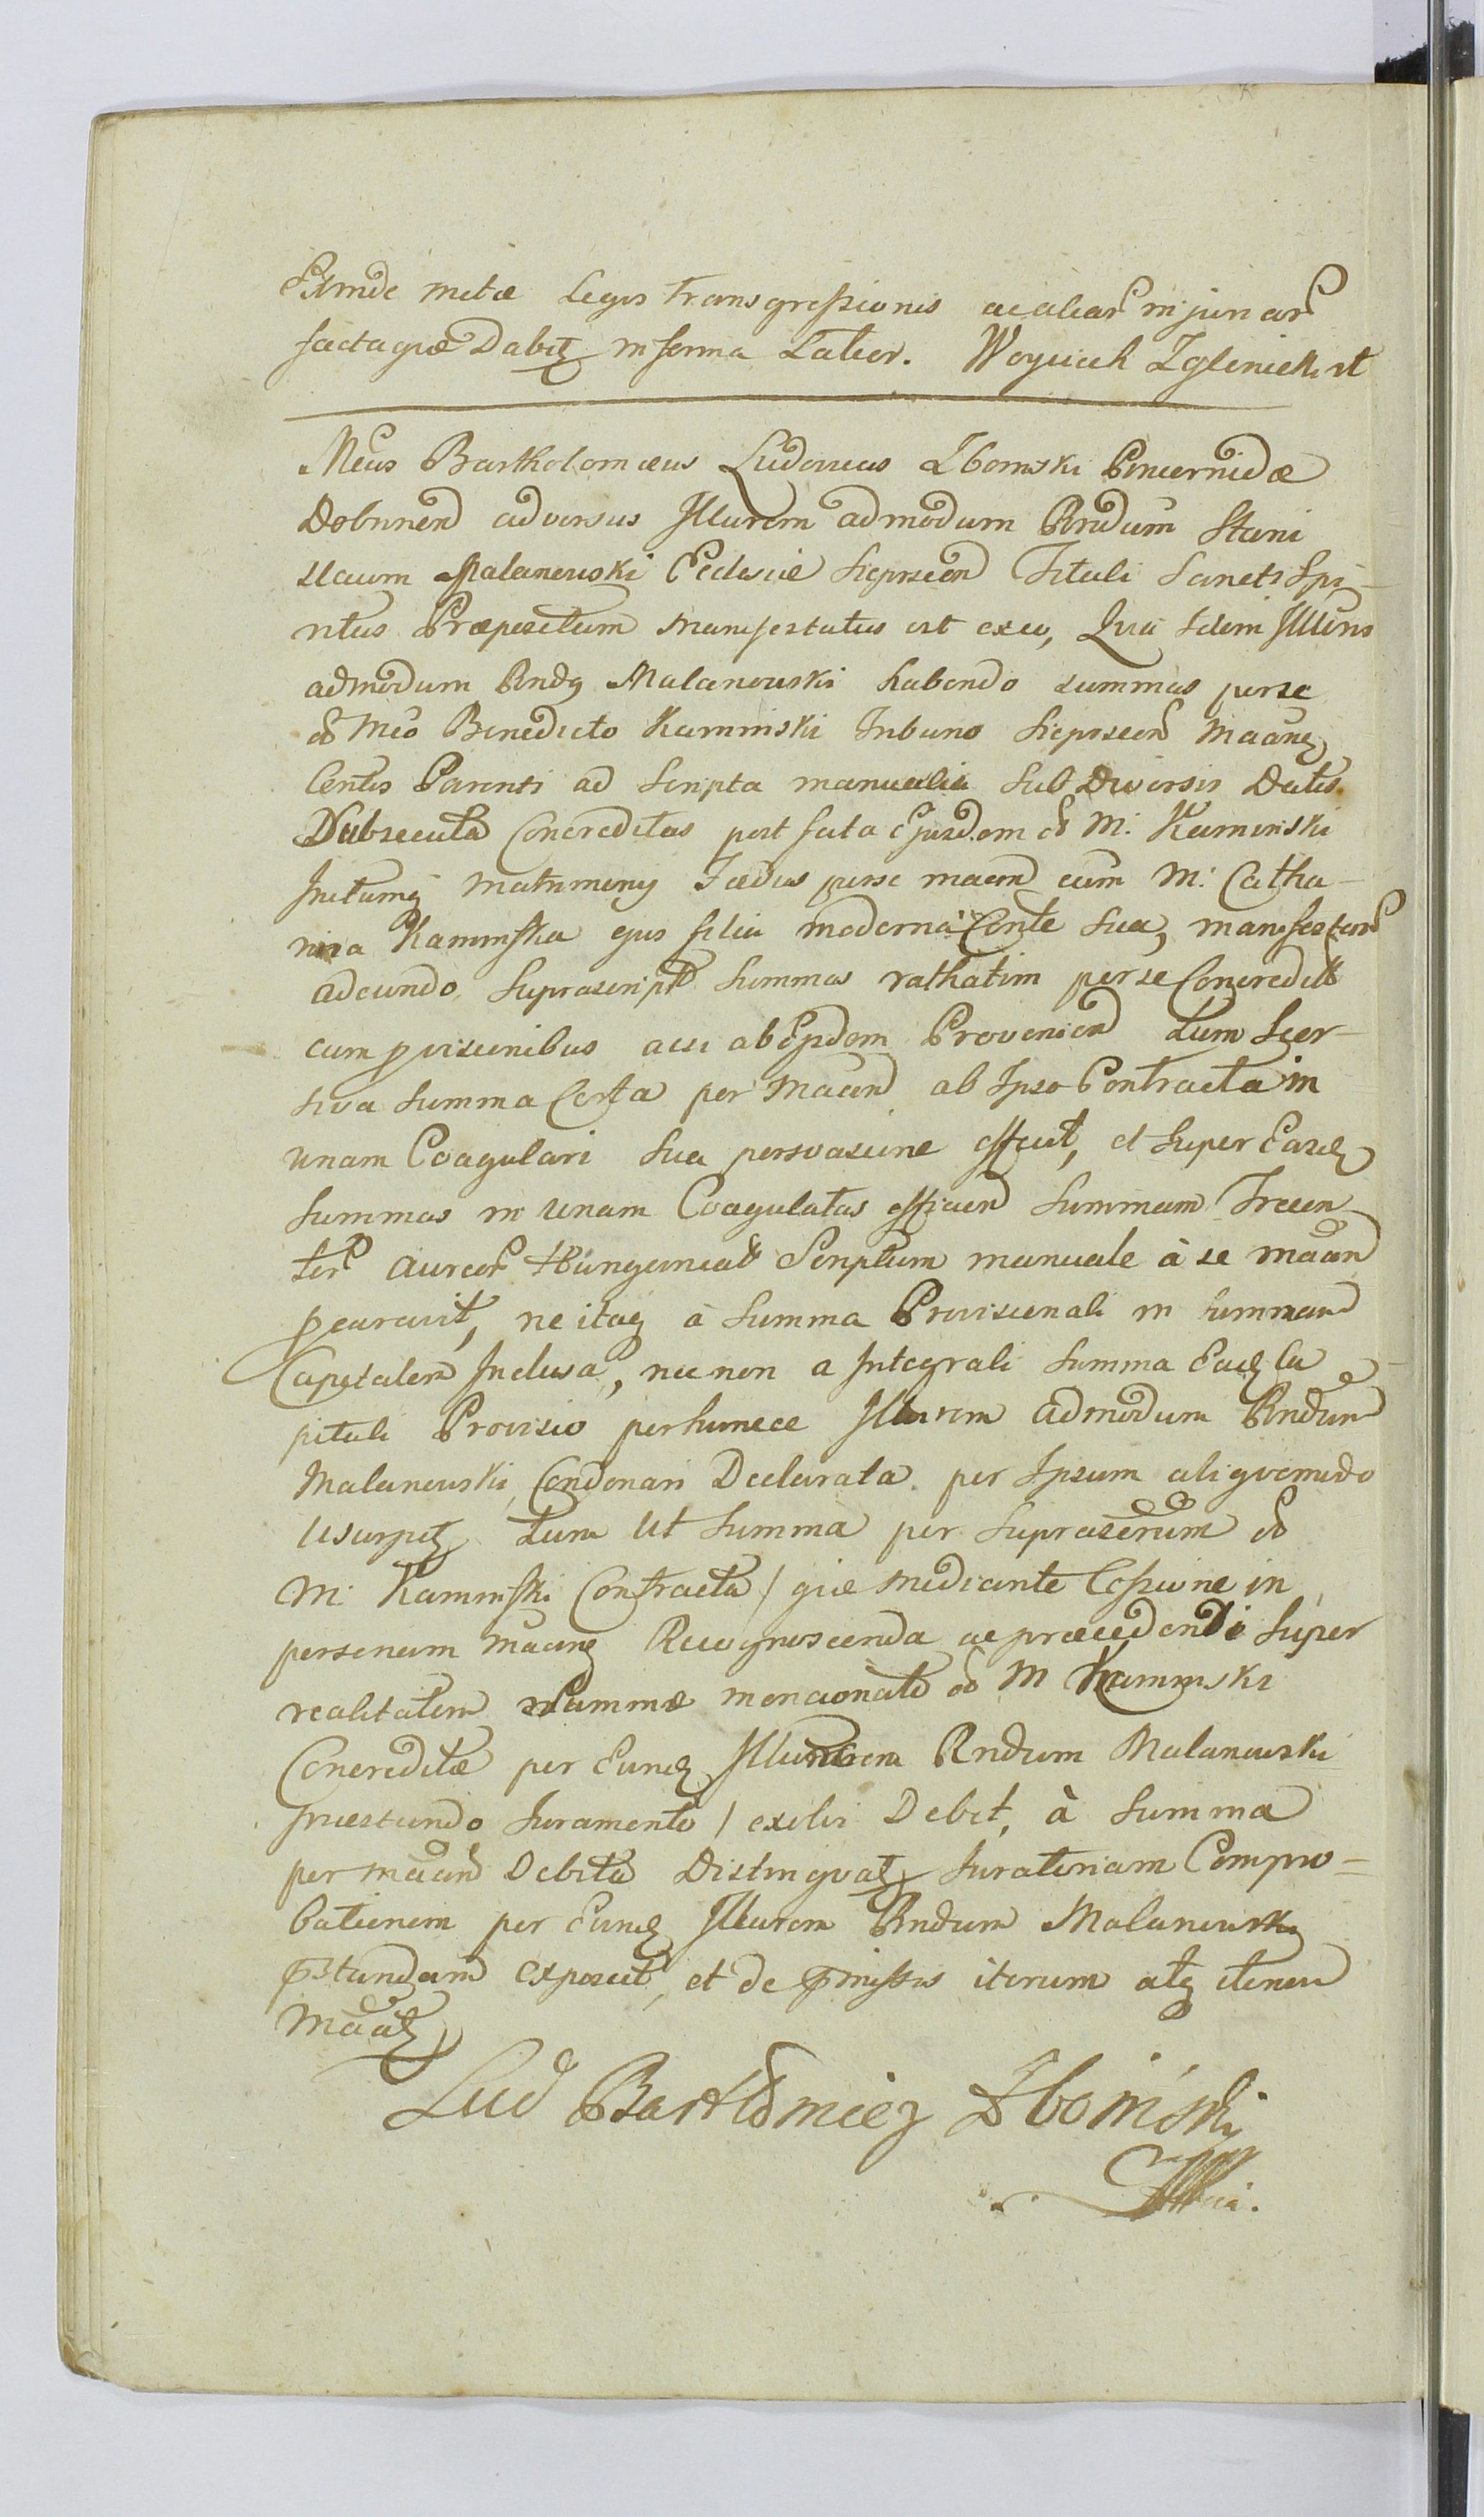 Exinde metæ Legis transgressionis ac aliar injuriar
factaque Dabitq in forma Latior. Woyciech Zglenicki mt
Mcus Bartholomæus Ludovicus Zboinski Pincernidæ
Dobrinen adversus Illurem admodum Rndum Stani
slaum Malanowski Ecclesiæ Sieprcen Tituli Sancti Spi-
ritus Præpositum manifestatus est exeo, Quia Idem Illuris
admodum Rndq Malanowski habendo summas per se
ol Mco Benedicto Kaminski Tribuno Sieprscen Maanq
Contis Parenti ad Scripta manualia Sub Diversis Datis
Subsecuta Concreditas post fata ejusdem ol M: Kaminski
Initumq matrimony Fædus per se maan cum M: Catha-
rina Kaminska ejus filia moderna Conte Sua, manifestan
adeundo Suprascript Summas rathatim per se Concredit
cum provisionibus acsi ab Ejsdem Provenien tum Seor-
siva Summa Certa per Maan ab Ipso Contracta in
unam Coagulari Sua persvasione effecit, et Super Easdq
Summas in unam Coagulatas efficien Summam Trecen
tor Aureor Hungarical Scriptum manuale à se maan
procuravit, ne itaq à Summa Provisionali in summam
Capitalem Inclusa, nec non a Integrali Summa Eadq Ca
pitali Provisio per hunece Illurem admodum Rndum
Malanowski Condonari Declarata per Ipsum aliqvomodo
Usurpetq tum Ut Summa per Suprascrium ol
M: Kaminski Contracta / qiæ mediante Cessione in
personam Maanq Recognoscenda ac præcedenti Super
realitatem Summæ moncionato ol M Kaminski
Concreditæ per Eundq Illurem Rndum Malanowski
præstando Juramento / exolvi Debet, à Summa
per maan Debita Distingvatq Juratoriam Compro-
bationem per Eundq Illurem Rndum Malanowski
pstandam exposcit, et de pmissis iterum atq iterum
Maatq
Lud Bartłomiey Zboinski